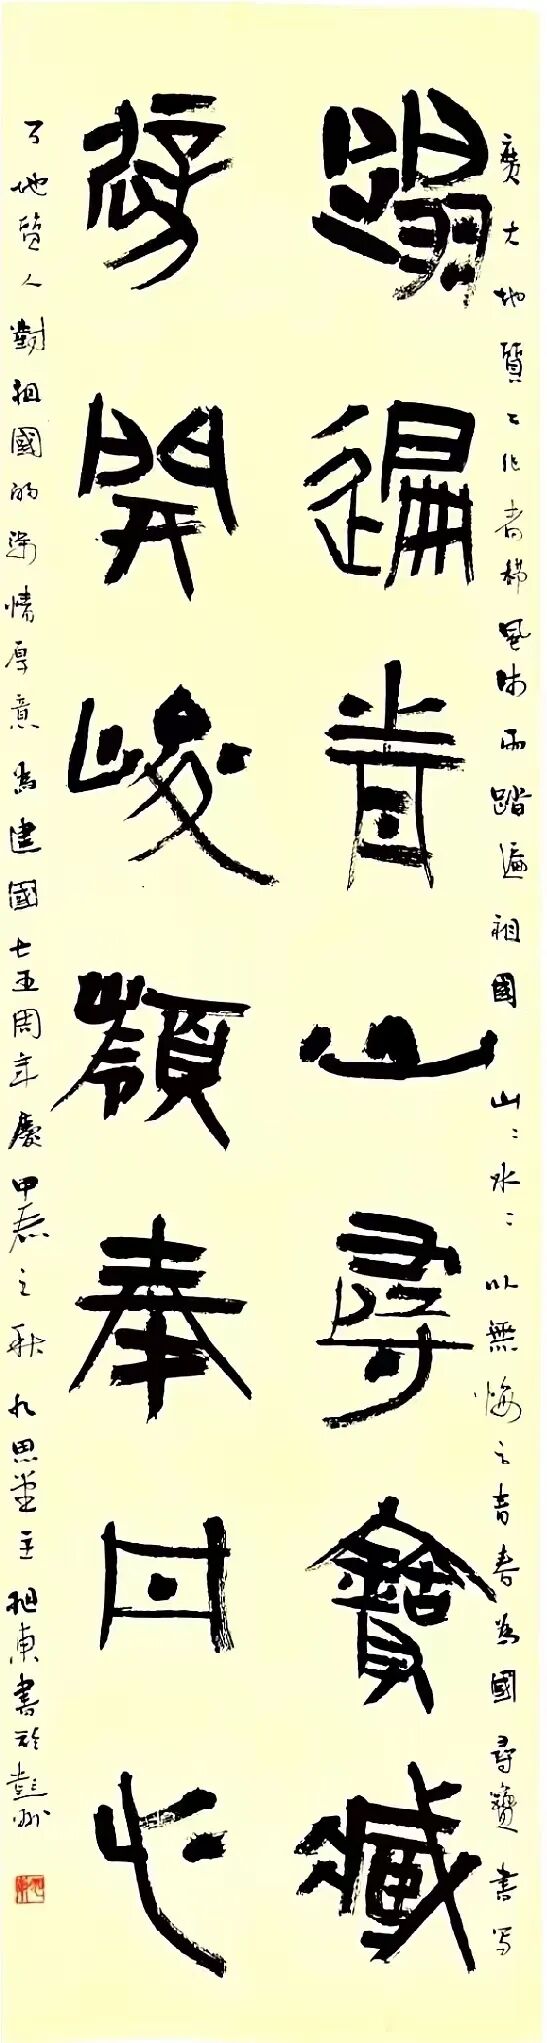 蹋遍青山尋寶藏
劈開峻嶺奉丹心
廣大地質工作者栉風沐雨踏遍祖國山〻水〻以無悔之青春為國尋寶書写
了地質人對祖國的深情厚意為建國七五周年慶甲辰之秋九思堂主旭東書於彭州